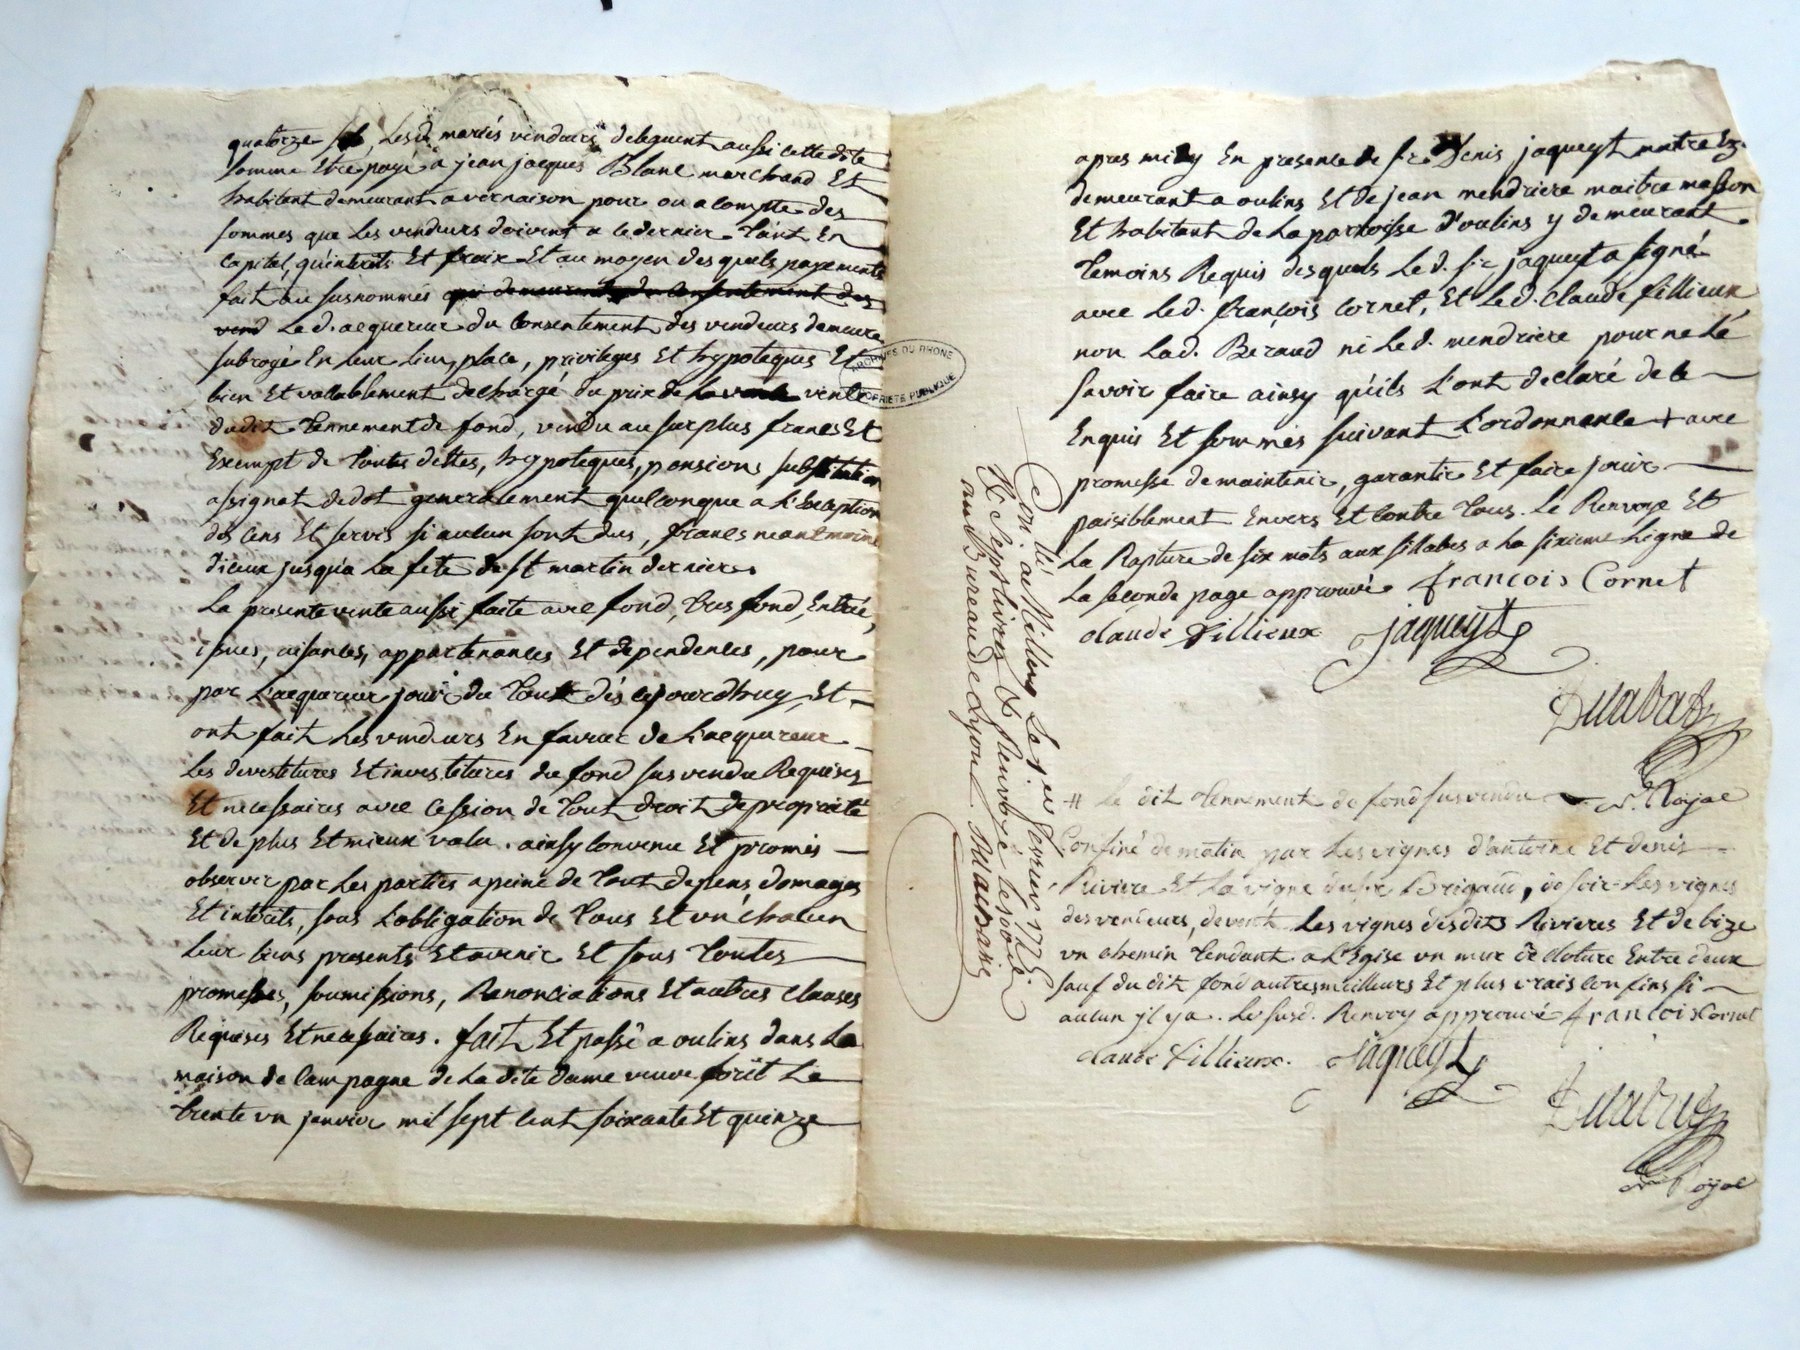 quatorze sols, Lesd. mariés vendeurs deleguent aussi cette dite
somme Etre payé à jean jacques Blanc marchand Et
habitant demeurant a vernaison pour ou a compte des
sommes que Les vendeurs doivent a ce dernier Tant En
Capital, qu'intérêts Et fraix Et au moyen des quels payements
fait au susnommés qui demeurent du consentement des
vend Le d. acquereur du Consentement des vendeurs demeure
subrogé En Leur Lieu, place, privileges Et hypoteques Et
bien Et vallablement dechargé du prix de La vente vente
dudit Tennement de fond, vendu au surplus francs Et
Exempt de Toutes dettes, hypoteques, pensions substitution
assignat de dot generalement quelconque a L'Exception
des Cens Et servis si aucun sont dus, francs neantmoins
d'iceux jusqu'a La fete de St martin dernier.
La presente vente aussi faite avec fond, Tres fond, Entrée,
issues, aisances, appartenances Et dependences, pour
par L'acquereur jouir du Tout dés cejourdhuy, Et
ont fait Les vendeurs En faveur de L'acquereur
Les devestitures Et investitures du fond sus vendu Requises
Et necessaires avec Cession de Tout droit de propriété
Et de plus Et mieux valu. ainsy Convenu Et promis
observer par Les parties a peine de Tout depens domages
Et interets, sous L'obligation de Tous Et un chacun
Leur biens presents Et avenir Et sous Toutes
promesses, soumissions, Renonciations Et autres Clauses
Requises Et necessaires. fait Et passé a oulins dans La
maison de Campagne de La dite dame veuve forêt Le
Trente un janvier mil sept Cent soixante Et quinze
ARCHIVES DU RHONE
PROPRIETE PUBLIQUE
Con. lé au Milleng Le 1er fevrier 1775
R. Sept livres & Reimbre le
au Bureau de Lyon
apres midy En presence de sr. Denis jaqueyt
demeurant a oulins Et de jean mendriere maitre masson
Et habitant de La parroisse d'oulins y demeurant
Temoins Requis desquels Le d. sr. jaqueyt a signé
avec Le d. françois Cornet, Et Le d. Claude fillieux
non Lad. Béraud ni Le d. mendriere pour ne Le
savoir faire ainsy qu'ils L'ont declaré de Ce
Enquis Et sommés suivant L'ordonnance + avec
promesse de maintenir, garantir Et faire jouir
paisiblement Envers Et Contre Tous. Le Renvoye Et
La Rapture de six mots aux sillabes a La sixieme Ligne de
La seconde page approuvé françois Cornet
claude fillieux jaqueyt
Nre Royal
# Le dit Tennement de fond susvendu
Confiné de matin par Les vignes d'antoine Et denis
Riviere Et La vigne du sr Brigaud, de soir Les vignes
des vendeurs, de vent Les vignes desdits Rivieres Et de bize
un chemin Tendant a L'Eglise un mur de cloture Entre deux
sauf du dit fond autres meilleurs Et plus vrais Confins si
aucun y il y a. Le susd. Renvoy approuvé françois Cornet
claude fillieux. jaqueyt
Nre Royal